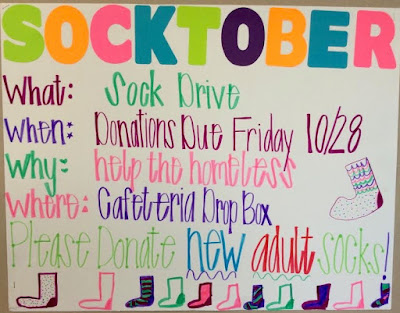 SOCKTOBER
What: Sock Drive
When: Donations Due Friday 10/28
Why: help the homeless
Where: Cafeteria Drop Box
Please Donate new adult socks!